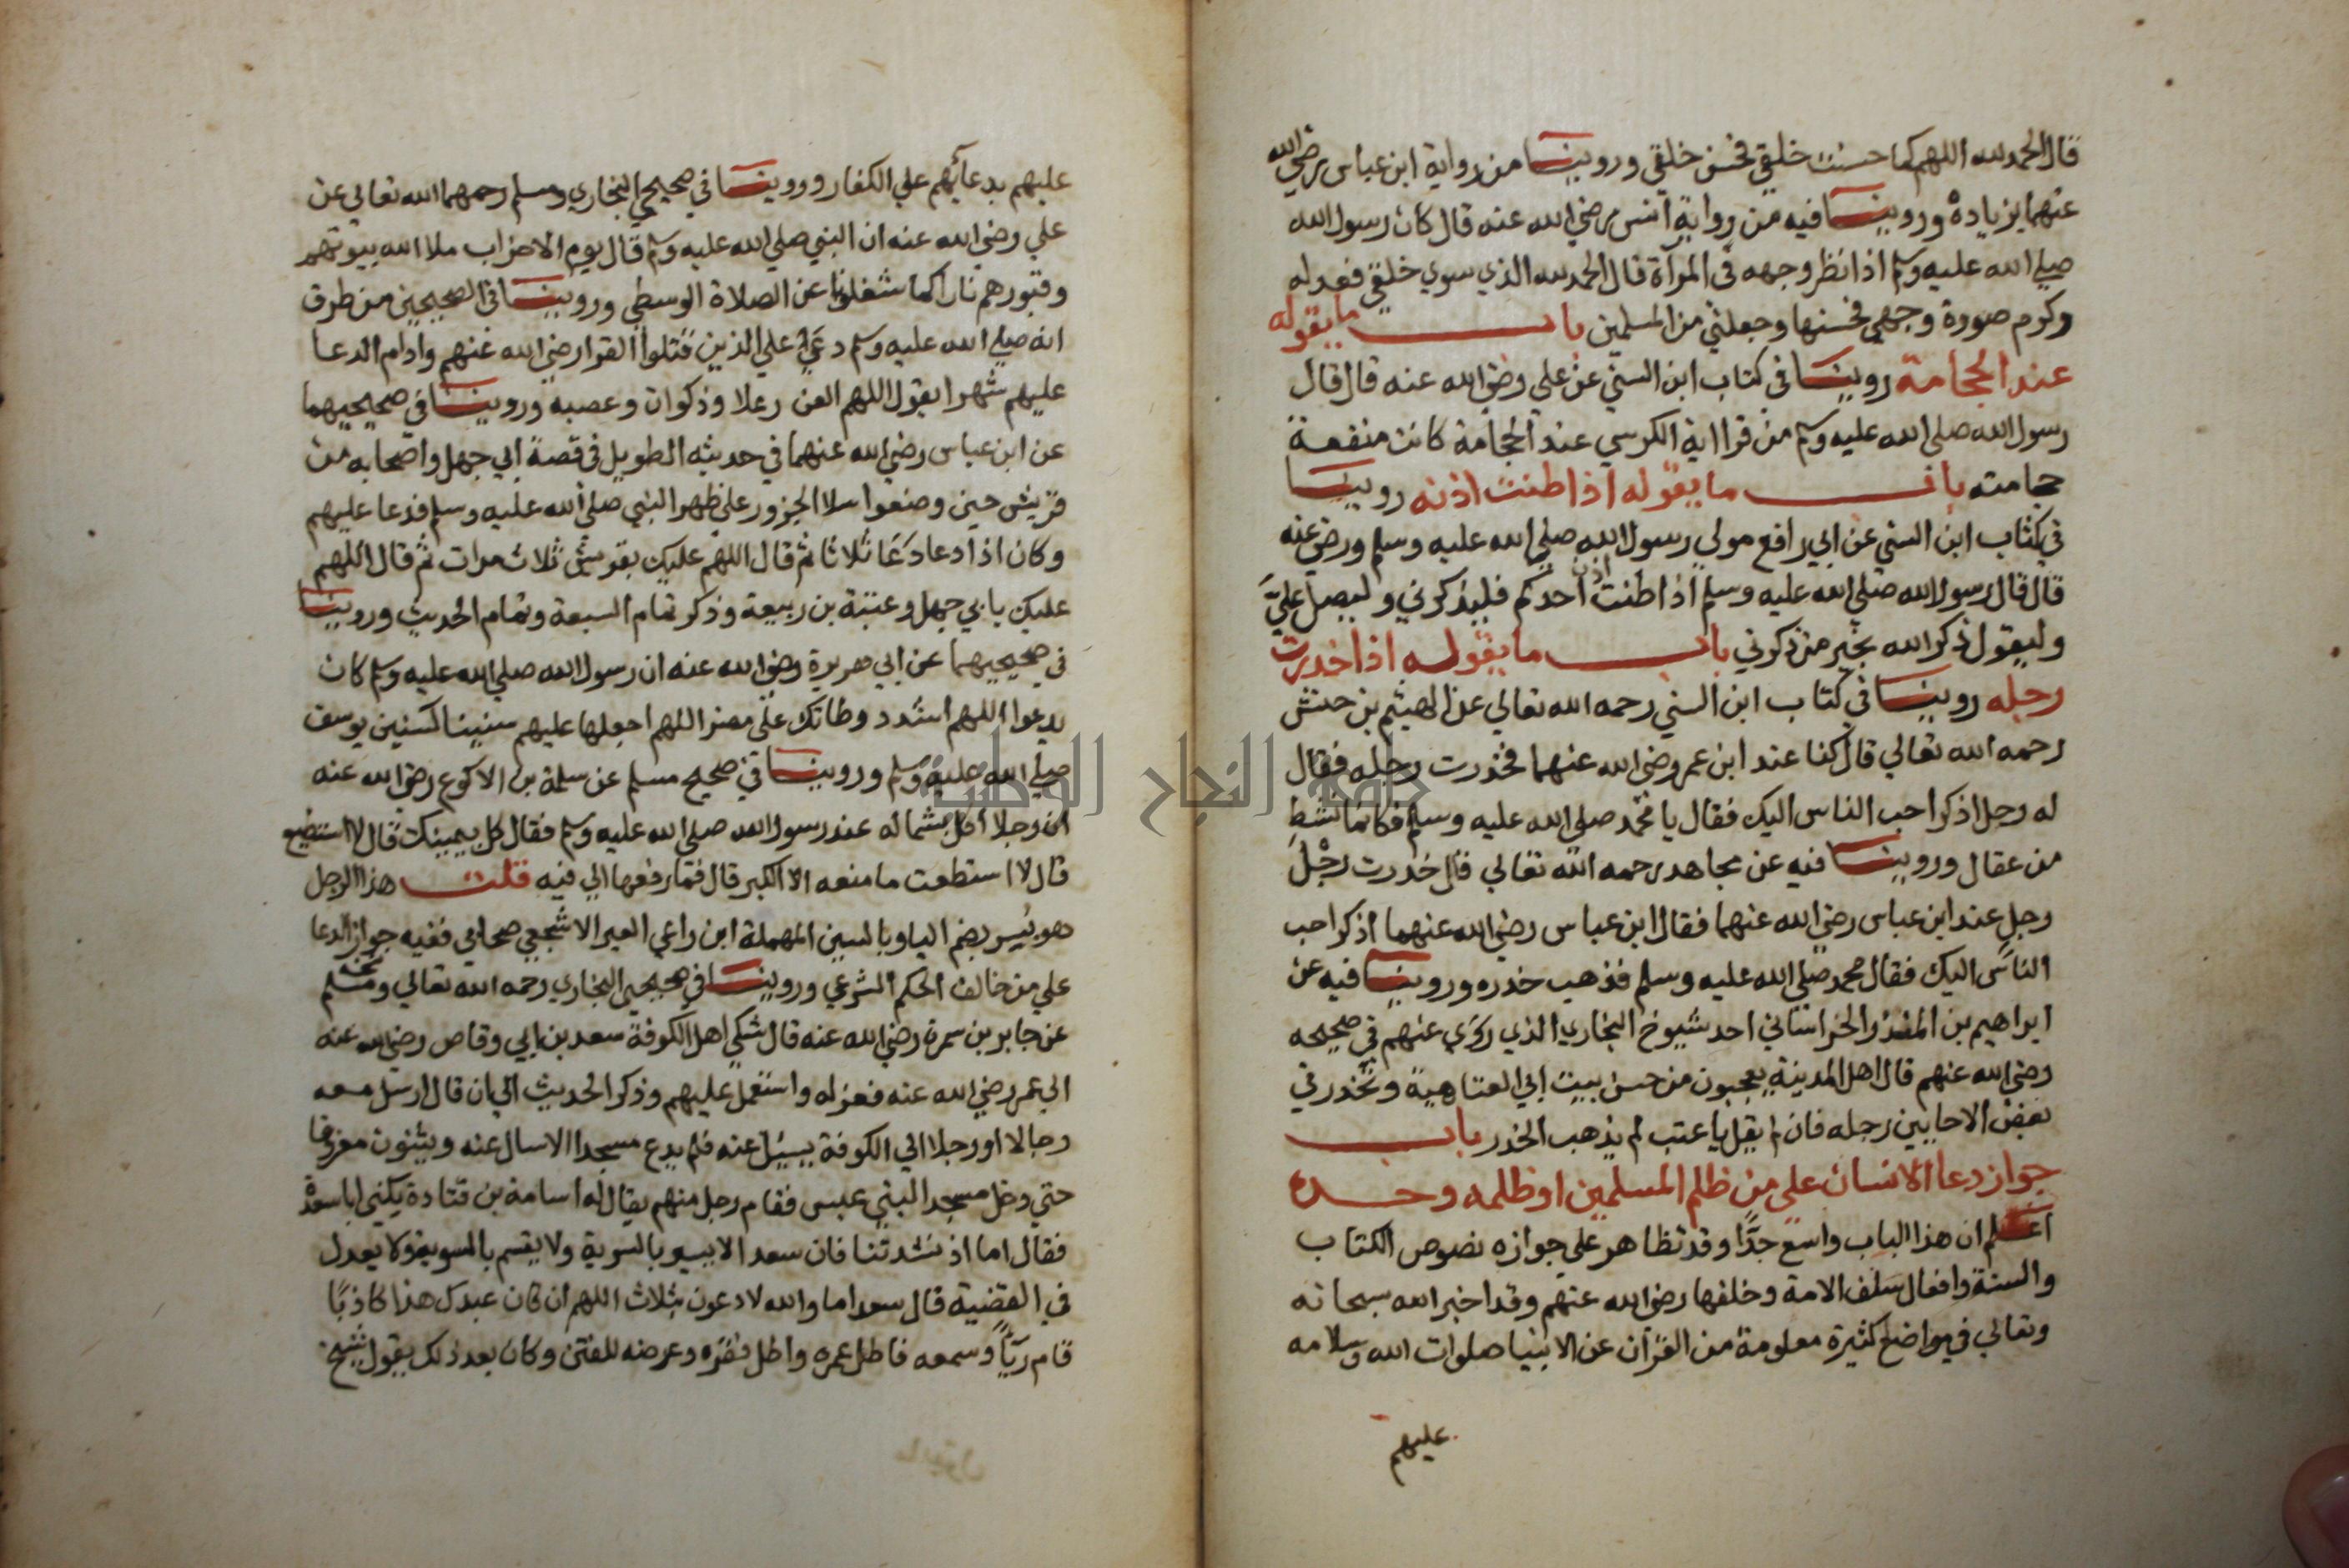 قال الحمد لله اللهم كما حسنت خلقي فحسن خلقي وروينا من رواية ابن عباس رضي الله
عنهما بزيادة وروينا فيه من رواية أنس رضي الله عنه قال كان رسول الله
صلي الله عليه وسلم اذا نظر وجهه في المرآة قال الحمد لله الذي سوي خلقي فعدله
وكرم صورة وجهي فحسنها وجعلني من المسلمين باب ما يقوله
عند الحجامة روينا في كتاب ابن السني عن علي رضي الله عنه قال قال
رسول الله صلي الله عليه وسلم من قرا اية الكرسي عند الحجامة كانت منفعة
حجامته باب ما يقوله اذا طنت اذنه روينا
في كتاب ابن السني عن ابي رافع مولي رسول الله صلي الله عليه وسلم ورضي عنه
قال قال رسول الله صلي الله عليه وسلم اذا طنت اذن احدكم فليذكرني وليصل عليَّ
وليقول ذكر الله بخير من ذكرني باب ما يقوله اذا خدرت
رجله روينا في كتاب ابن السني رحمه الله تعالي عن الهيثم بن حنش
رحمه الله تعالي قال كنا عند ابن عمر رضي الله عنهما فخدرت رجله فقال
له رجل اذكر احب الناس اليك فقال يا محمد صلي الله عليه وسلم فكانما نشط
من عقال وروينا فيه عن مجاهد رحمه الله تعالي قال خدرت رجْلُ
رجل عند ابن عباس رضي الله عنهما فقال ابن عباس رضي الله عنهما اذكر احب
الناس اليك فقال محمد صلي الله عليه وسلم فذهب خدره وروينا فيه عن
ابراهيم بن المنذر الخراساني احد شيوخ البخاري الذي روي عنهم في صحيحه
رضي الله عنهم قال اهل المدينة يعجبون من حسن بيت ابي العتاهية وتخدر في
بعض الاحايين رجله فان لم يقل يا عتب لم يذهب الخدر باب
جواز دعا الانسان علي من ظلم المسلمين او ظلمه وحده
اعلم ان هذا الباب واسع جدًّا وقد تظاهر علي جوازه نصوص الكتاب
والسنة وافعال سلف الامة وخلفها رضي الله عنهم وقد اخبر الله سبحانه
وتعالي في مواضع كثيرة معلومة من القرآن عن الانبيا صلوات الله وسلامه
عليهم
عليهم بدعائهم علي الكفار وروينا في صحيحي البخاري ومسلم رحمهما الله تعالي عن
علي رضي الله عنه ان النبي صلي الله عليه وسلم قال يوم الاحزاب ملا الله بيوتهم
وقبورهم نارا كما شغلونا عن الصلاة الوسطي وروينا في الصحيحين من طرق
انه صلي الله عليه وسلم دعي علي الذين قتلوا القرا رضي الله عنهم وادام الدعا
عليهم شهرا يقول اللهم العن رعلا وذكوان وعصبه وروينا في صحيحيهما
عن ابن عباس رضي الله عنهما في حديثه الطويل في قصة ابي جهل واصحابه من
قريش حين وضعوا سلا الجزور علي ظهر النبي صلي الله عليه وسلم فدعا عليهم
وكان اذا دعا دعا ثلاثا ثم قال اللهم عليك بقريش ثلاث مرات ثم قال اللهم
عليك بابي جهل وعتبة بن ربيعة وذكر تمام السبعة وتمام الحديث وروينا
في صحيحيهما عن ابي هريرة رضي الله عنه ان رسول الله صلي الله عليه وسلم كان
يدعوا اللهم اشدد وطاتك علي مضر اللهم اجعلها عليهم سنينا كسنين يوسف
صلي الله عليه وسلم وروينا في صحيح مسلم عن سلمة بن الاكوع رضي الله عنه
ان رجلا اكل بشماله عند رسول الله صلي الله عليه وسلم فقال كل بيمينك قال لا استطيع
قال لا استطعت ما منعه الا الكبر قال فما رفعها الي فيه قلت هذا الرجل
هو بُسر بضم البا وبالسين المهملة ابن راعي العير الاشجعي صحابي ففيه جواز الدعا
علي من خالف الحكم الشرعي وروينا في صحيحي البخاري رحمه الله تعالي ومسلم
عن جابر بن سمرة رضي الله عنه قال شكي اهل الكوفة سعد بن ابي وقاص رضي الله عنه
الي عمر رضي الله عنه فعزله واستعمل عليهم وذكر الحديث الي ان قال ارسل معه
رجالا او رجلا الي الكوفة يسئل عنه فلم يدع مسجدا الا سال عنه ويثنون معروفا
حتي دخل مسجد البني عبس فقام رجل منهم يقال له اسامة بن قتادة يكني ابا سعدة
فقال اما اذ نشدتنا فان سعد الا يسير بالسرية ولا يقسم بالسوية ولا يعدل
في القضية قال سعد اما والله لادعون بثلاث اللهم ان كان عبدك هذا كاذبًا
قام ريًا وسمعه فاطل عمره واطل فقره وعرضه للفتن وكان بعد ذلك يقول شيخ
جامعة النجاح الوطنية